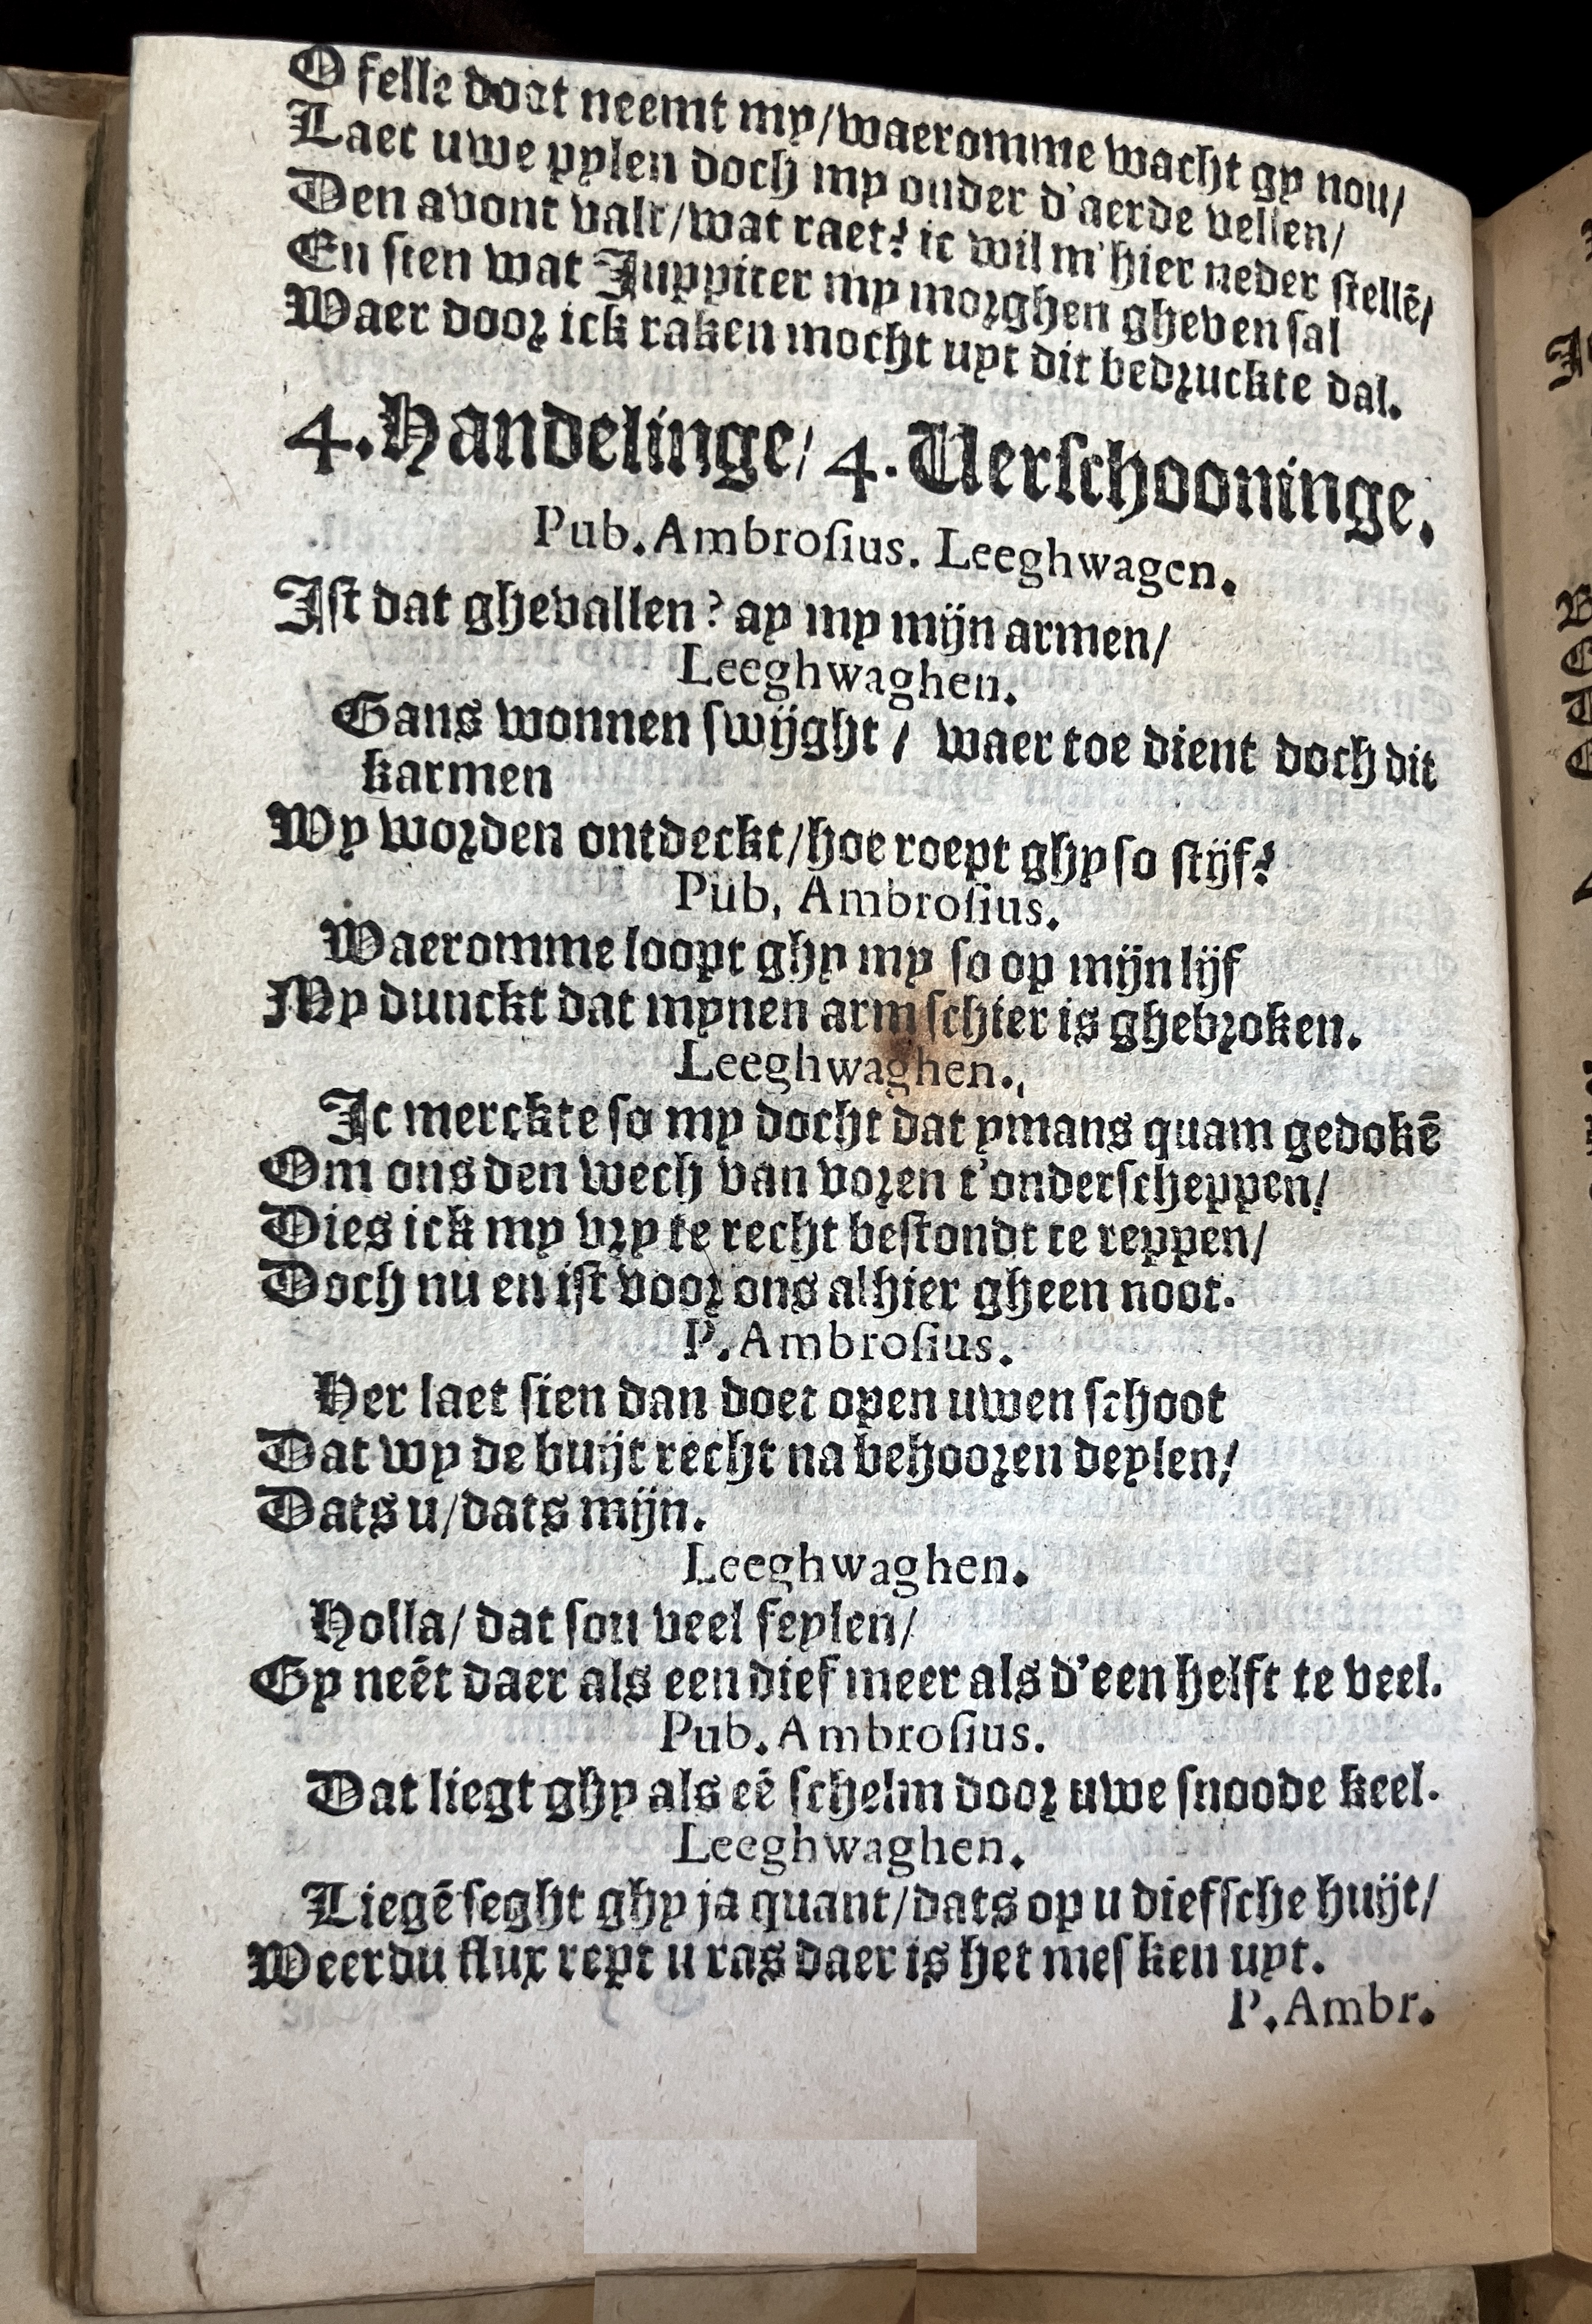 O felle doot neemt my/waeromme wacht gy nou/
Laet uwe pylen doch my onder d'aerde vellen/
Den avont valt/wat raet? ic wil m'hier neder stellē/
En sien wat Juppiter my morghen gheven sal
Waer door ick raken mocht uyt dit bedruckte dal.
4.Handelinge/ 4. Verschooninge.
Pub. Ambrosius. Leeghwagen.
Ist dat ghevallen? ay my mijn armen/
Leeghwaghen.
Gans wonnen swijght / waer toe dient doch dit
karmen
Wy worden ontdeckt/hoe roept ghy so stijf?
Pub, Ambrosius.
Waeromme loopt ghy my so op mijn lijf
My dunckt dat mynen arm schier is ghebroken.
Leeghwaghen.
Ic merckte so my docht dat ymans quam gedokē
Om ons den wech van voren t'onderscheppen/
Dies ick my vry te recht bestondt te reppen/
Doch nu en ist voor ons alhier gheen noot.
P. Ambrosius.
Her laet sien dan doet open uwen schoot
Dat wy de buijt recht na behooren deylen/
Dats u/dats mijn.
Leeghwaghen.
Holla/ dat sou veel feylen/
Gy neēt daer als een dief meer als d'een helft te veel.
Pub. Ambrosius.
Dat liegt ghy als eē schelm door uwe snoode keel.
Leeghwaghen.
Liegē seght ghy ja quant/dats op u diefsche huijt/
Weerdu flux rept u ras daer is het mes ken uyt.
P. Ambr.